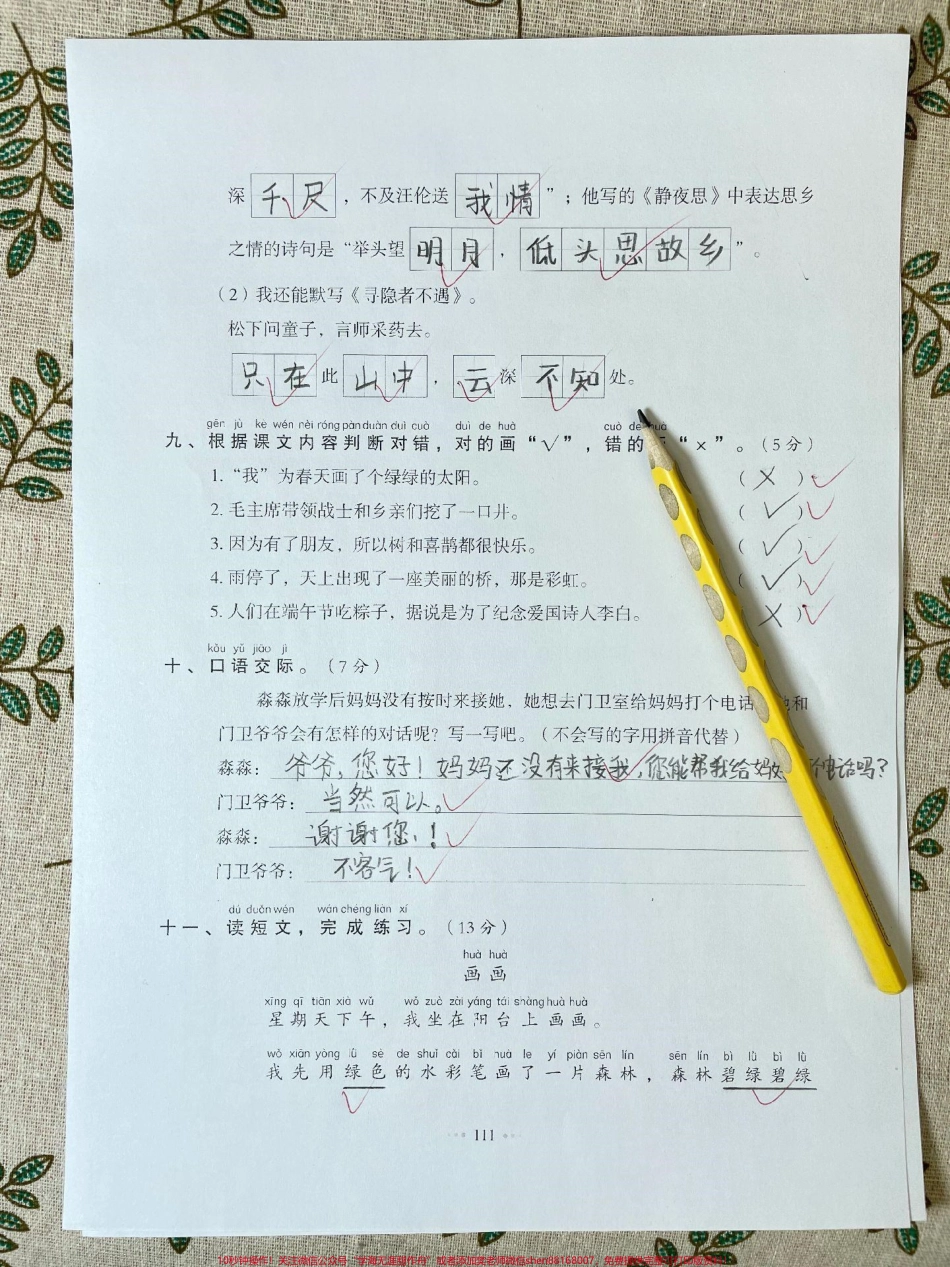 深千尺，不及汪伦送我情”；他写的《静夜思》中表达思乡
之情的诗句是“举头望明月，低头思故乡”。
（2）我还能默写《寻隐者不遇》。
松下问童子，言师采药去。
只在此山中，云深不知处。
gēn jù kè wén nèi róng pàn duàn duì cuò duì de huà cuò de huà
九、根据课文内容判断对错，对的画“√”，错的“×”。（5分）
1. “我”为春天画了个绿绿的太阳。（×）
2. 毛主席带领战士和乡亲们挖了一口井。（✓）
3. 因为有了朋友，所以树和喜鹊都很快乐。（✓）
4. 雨停了，天上出现了一座美丽的桥，那是彩虹。（✓）
5. 人们在端午节吃粽子，据说是为了纪念爱国诗人李白。（×）
kǒu yǔ jiāo jì
十、口语交际。（7分）
淼淼放学后妈妈没有按时来接她，她想去门卫室给妈妈打个电话 和
门卫爷爷会有怎样的对话呢？写一写吧。（不会写的字用拼音代替）
淼淼：爷爷，您好！妈妈还没有来接我，您能帮我给妈 电话吗？
门卫爷爷：当然可以。
淼淼：谢谢您！
门卫爷爷：不客气！
dú duǎn wén wán chéng liàn xí
十一、读短文，完成练习。（13分）
huà huà
画画
xīng qī tiān xià wǔ wǒ zuò zài yáng tái shàng huà huà
星期天下午，我坐在阳台上画画。
wǒ xiān yòng lǜ sè de shuǐ cǎi bǐ huà le yí piàn sēn lín sēn lín bì lǜ bì lǜ
我先用绿色的水彩笔画了一片森林，森林碧绿碧绿
111